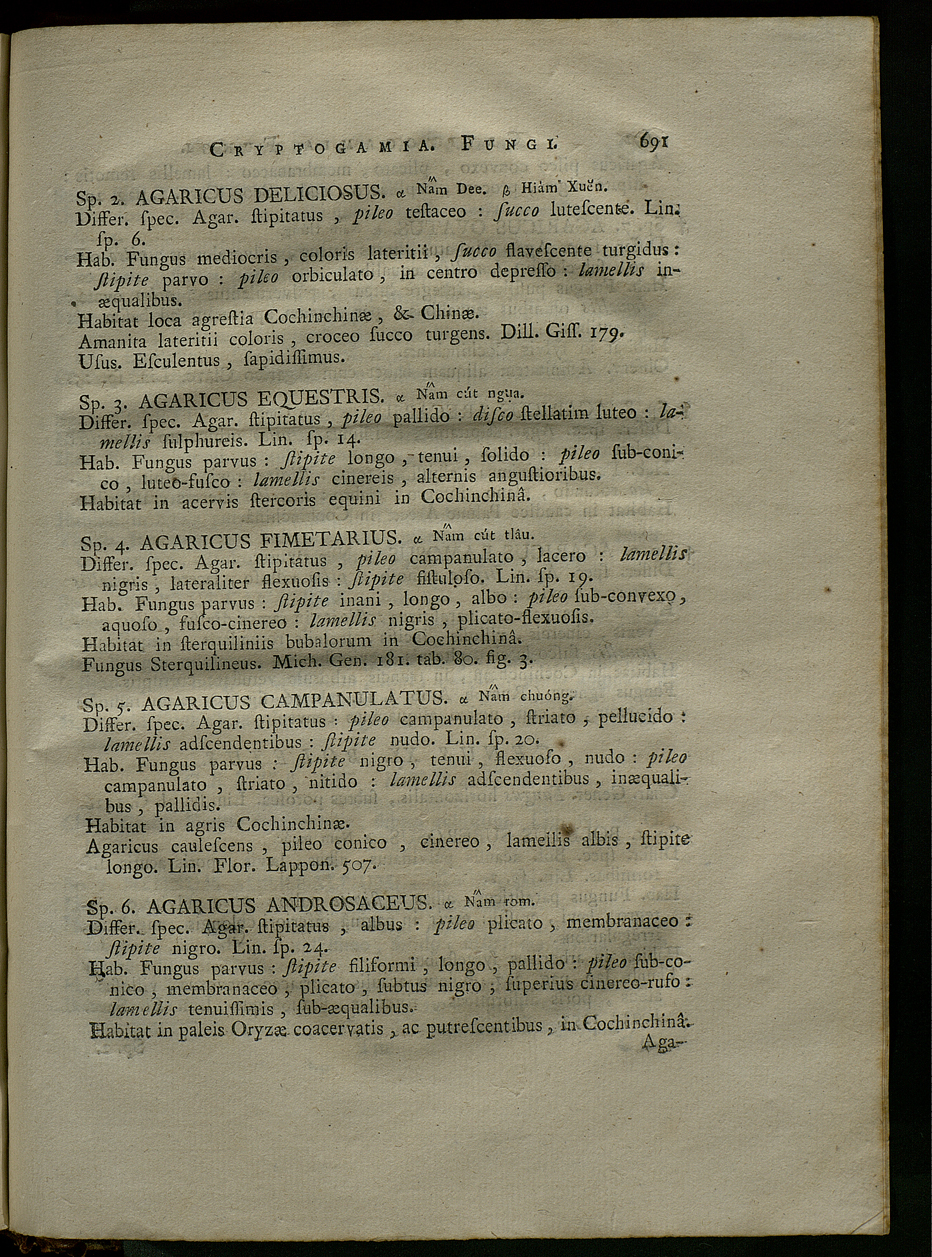 CRYPTOGAMIA. FUNGI. 691
Sp. 2. AGARICUS DELICIOSUS. α Nấm Dee. β Hiám Xuẽn.
Differ. ſpec. Agar. ſtipitatus , pileo teſtaceo : ſucco luteſcente. Lin.
ſp. 6.
Hab. Fungus mediocris , coloris lateritii , ſucco flaveſcente turgidus :
ſtipite parvo : pileo orbiculato , in centro depreſſo : lamellis in-
æqualibus.
Habitat loca agreſtia Cochinchinæ , & Chinæ.
Amanita lateritii coloris , croceo ſucco turgens. Dill. Giſſ. 179.
Uſus. Eſculentus , ſapidiſſimus.
Sp. 3. AGARICUS EQUESTRIS. α Nấm cút ngụa.
Differ. ſpec. Agar. ſtipitatus , pileo pallido : diſco ſtellatim luteo : la-
mellis ſulphureis. Lin. ſp. 14.
Hab. Fungus parvus : ſtipite longo , tenui , ſolido : pileo ſub-coni-
co , luteo-fuſco : lamellis cinereis , alternis anguſtioribus.
Habitat in acervis ſtercoris equini in Cochinchinâ.
Sp. 4. AGARICUS FIMETARIUS. α Nấm cút tlâu.
Differ. ſpec. Agar. ſtipitatus , pileo campanulato , lacero : lamellis
nigris , lateraliter flexuoſis : ſtipite fiſtuloſo. Lin. ſp. 19.
Hab. Fungus parvus : ſtipite inani , longo , albo : pileo ſub-convexo ,
aquoſo , fuſco-cinereo : lamellis nigris , plicato-flexuoſis.
Habitat in ſterquiliniis bubalorum in Cochinchinâ.
Fungus Sterquilineus. Mich. Gen. 181. tab. 80. fig. 3.
Sp. 5. AGARICUS CAMPANULATUS. α Nấm chuóng.
Differ. ſpec. Agar. ſtipitatus : pileo campanulato , ſtriato , pellucido :
lamellis adſcendentibus : ſtipite nudo. Lin. ſp. 20.
Hab. Fungus parvus : ſtipite nigro , tenui , flexuoſo , nudo : pileo
campanulato , ſtriato , nitido : lamellis adſcendentibus , inæquali-
bus , pallidis.
Habitat in agris Cochinchinæ.
Agaricus cauleſcens , pileo conico , cinereo , lamellis albis , ſtipite
longo. Lin. Flor. Lappon. 507.
Sp. 6. AGARICUS ANDROSACEUS. α Nấm rom.
Differ. ſpec. Agar. ſtipitatus , albus : pileo plicato , membranaceo :
ſtipite nigro. Lin. ſp. 24.
Hab. Fungus parvus : ſtipite filiformi , longo , pallido : pileo ſub-co-
nico , membranaceo , plicato , ſubtus nigro , ſuperius cinereo-rufo :
lamellis tenuiſſimis , ſub-æqualibus.
Habitat in paleis Oryzæ coacervatis , ac putreſcentibus , in Cochinchinâ.
Aga-